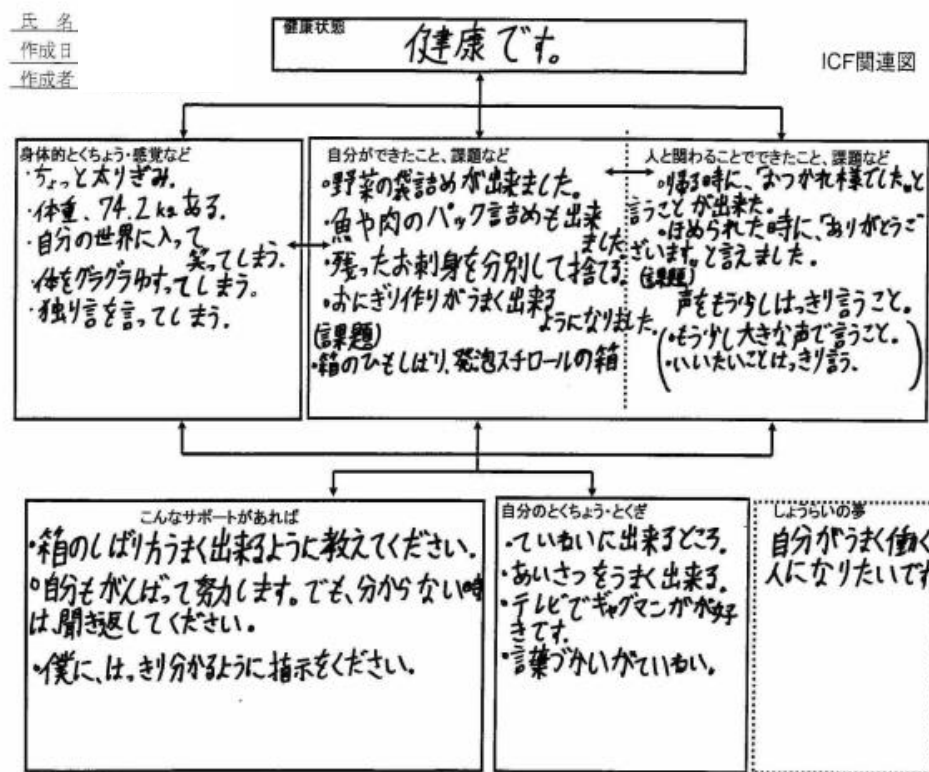 氏 名
作成日
作成者
健康状態
健康です。
ICF関連図
身体的とくちょう・感覚など
・ちょっと太りぎみ.
・体重、74.2kgある.
・自分の世界に入って
笑ってしまう.
・体をグラグラゆすってしまう。
・独り言を言ってしまう.
自分ができたこと、課題など
・野菜の袋詰めが出来ました。
・魚や肉のパック詰めも出来
ました
・残ったお刺身を分別して捨てる.
・おにぎり作りがうまく出来る
ようになりました.
(課題)
・箱のひもしばり、発泡スチロールの箱
人と関わることでできたこと、課題など
・帰る時に、「おつかれ様でした。」と
言うことが出来た。
・ほめられた時に、「ありがとうご
ざいます。」と言えました。
(課題)
声をもう少しはっきり言うこと。
(・もう少し大きな声で言うこと。
・いいたいことはっきり言う.)
こんなサポートがあれば
・箱のしばり方うまく出来るように教えてください.
・自分もがんばって努力します。でも、分からない時
は、聞き返してください。
・僕に、はっきり分かるように指示をください。
自分のとくちょう・とくぎ
・ていねいに出来るどころ.
・あいさつをうまく出来る.
・テレビでギャグマンガが好
きです.
・言葉づかいがていねい。
しょうらいの夢
自分がうまく働く
人になりたいです